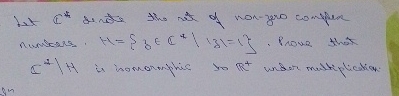 Let ℂ* denote the set of non-zero complex
numbers. H = { z ∈ ℂ* | |z| = 1 }. Prove that
ℂ*/H is isomorphic to ℝ⁺ under multiplication.